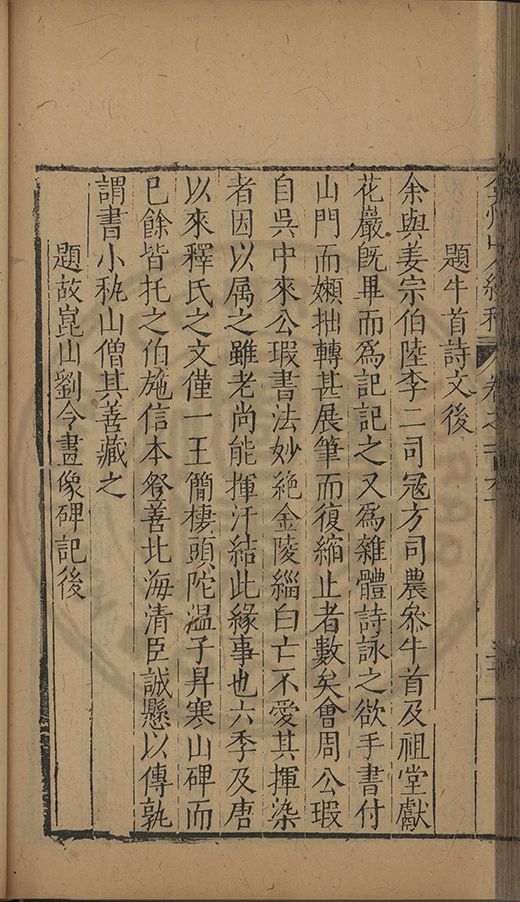 題牛首詩文後
余與姜宗伯陸李二司冦方司農叅牛首及祖堂獻
花巖旣畢而爲記記之又爲雜體詩詠之欲手書付
山門而嬾拙轉甚展筆而復縮止者數矣會周公瑕
自吳中來公瑕書法妙絶金陵緇白亡不愛其揮染
者因以属之雖老尚能揮汗結此緣事也六季及唐
以來釋氏之文僅一王簡棲頭陀溫子昇寒山碑而
已餘皆托之伯施信本登善北海清臣誠懸以傳孰
謂書小執山僧其善藏之
題故崑山劉令畫像碑記後